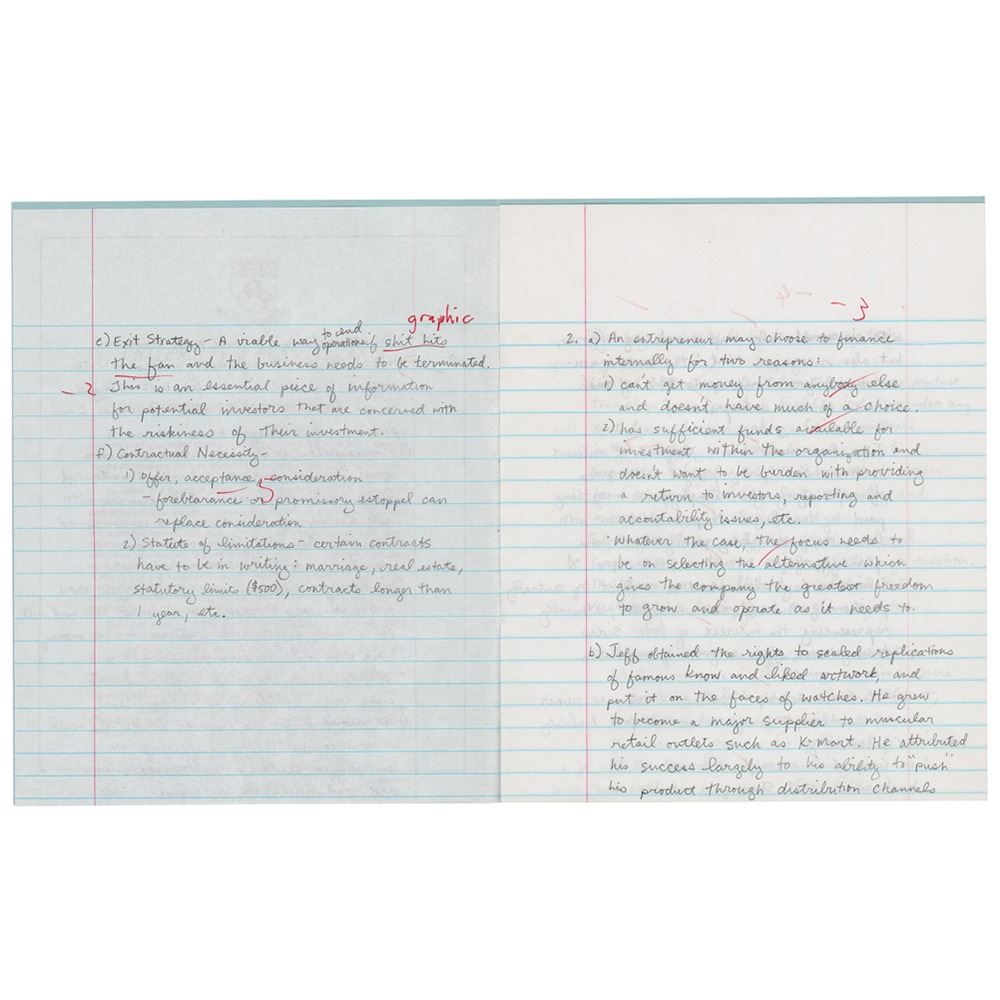 graphic
e) Exit Strategy - A viable way to end operations if shit hits
the fan and the business needs to be terminated.
- 2 This is an essential piece of information
for potential investors that are concerned with
the riskiness of their investment.
f) Contractual Necessity -
1) offer, acceptance, consideration
- forebearance or promissory estoppel can
replace consideration
2) Statute of limitations - certain contracts
have to be in writing: marriage, real estate,
statutory limits ($500), contracts longer than
1 year, etc.
- 3
2. a) An entrepreneur may choose to finance
internally for two reasons:
1) can't get money from anybody else
and doesn't have much of a choice.
2) has sufficient funds available for
investment within the organization and
doesn't want to be burden with providing
a return to investors, reporting and
accountability issues, etc.
· Whatever the case, the focus needs to
be on selecting the alternative which
gives the company the greatest freedom
to grow and operate as it needs to.
b) Jeff obtained the rights to scaled replications
of famous know and liked artwork, and
put it on the faces of watches. He grew
to become a major supplier to
retail outlets such as K-mart. He attributed
his success largely to his ability to "push"
his product through distribution channels